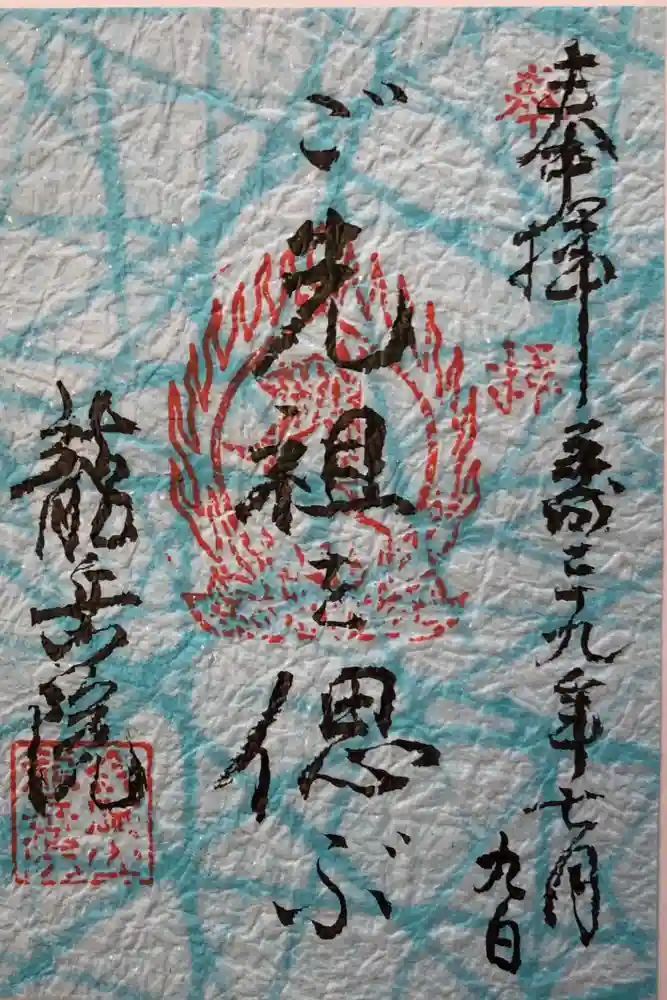 奉拝
平成二十九年七月
九日
ご先祖を偲ぶ
龍岳院